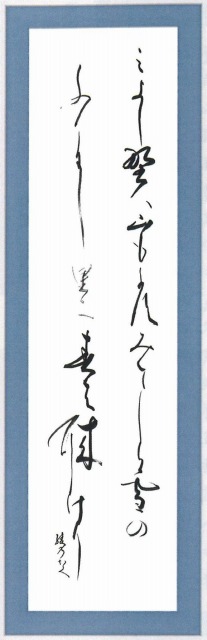 みよし野ハ山もかすみてしら雪の
ふりにし里に春は来にけり